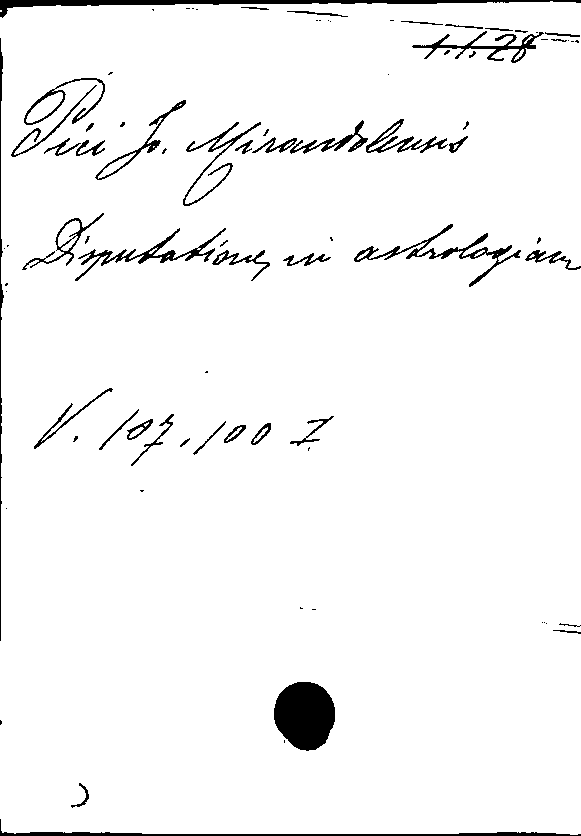 1.1.28
Pici Jo. Mirandolensis
Disputationes in astrologiam
V. 107.100 I